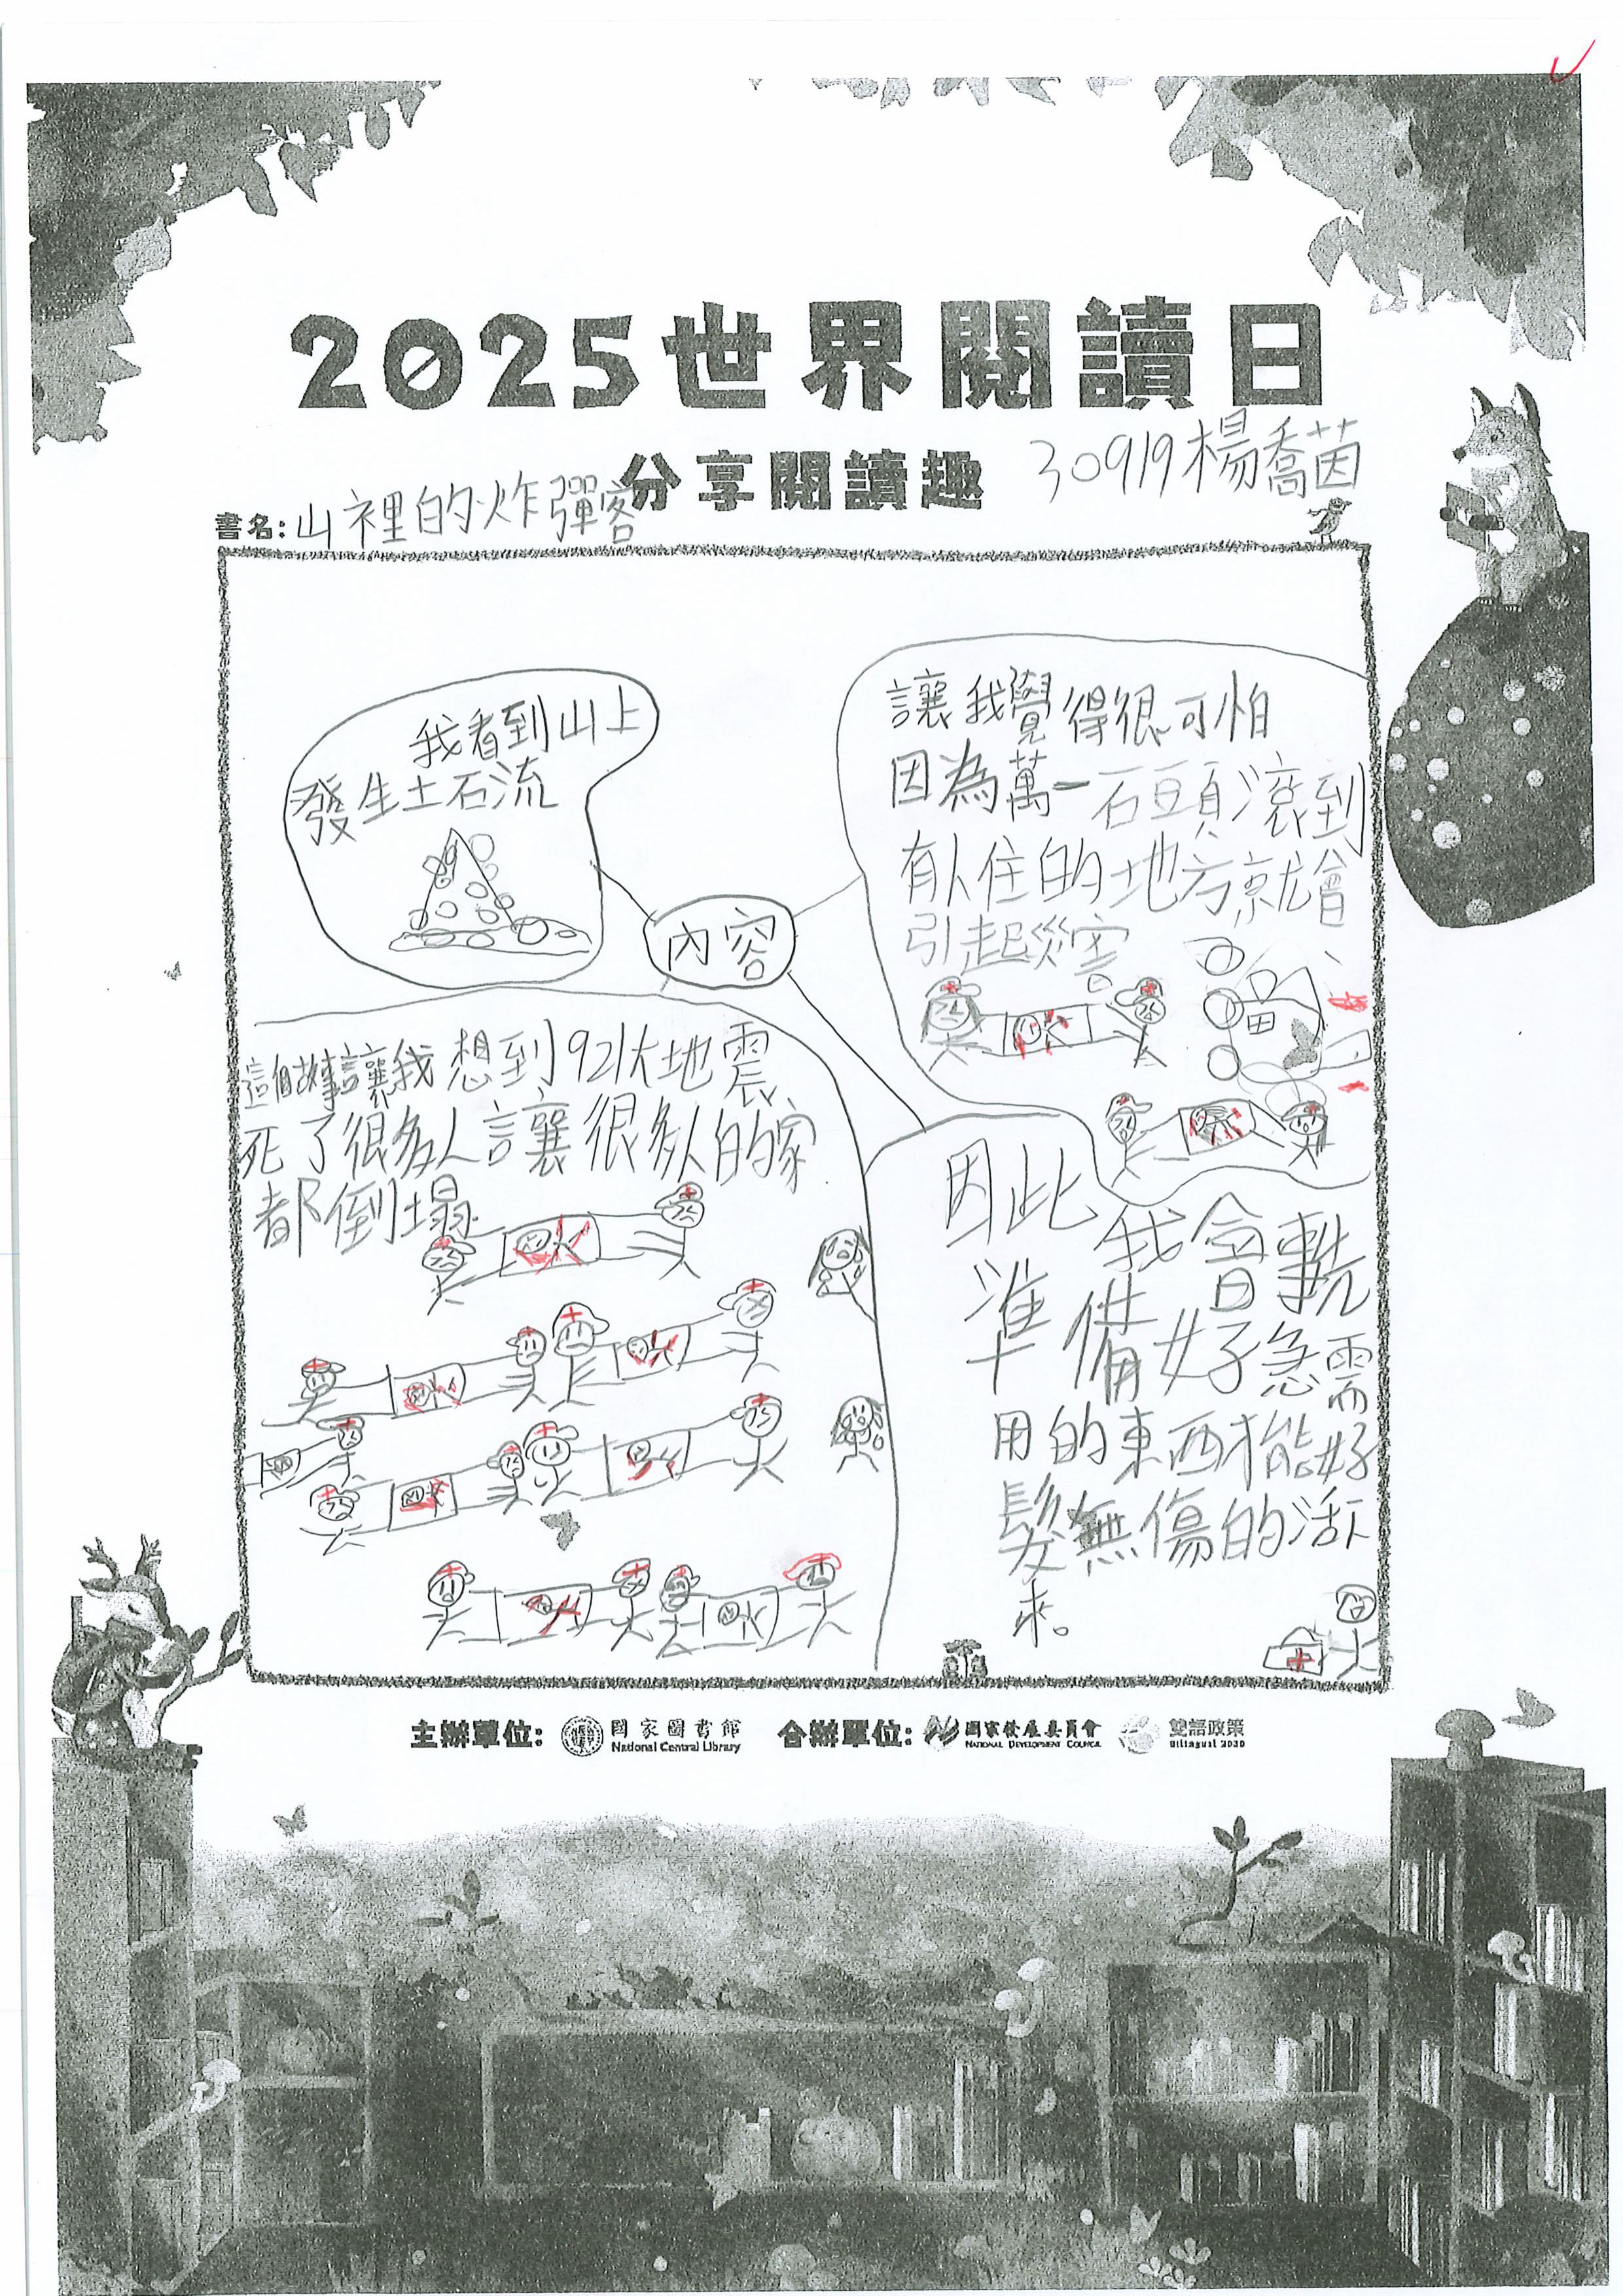 2025世界閱讀日
分享閱讀趣
30919楊喬茵
書名:山裡的炸彈客
我看到山上
發生土石流
內容
讓我覺得很可怕
因為萬一石頭滾到
有人住的地方就會
引起災害。
這個故事讓我想到921大地震
死了很多人讓很多人的家
都倒塌
因此
我會
準備好急需
用的東西才能好
髮無傷的活下
來。
主辦單位:
國家圖書館
National Central Library
合辦單位:
國家發展委員會
NATIONAL DEVELOPMENT COUNCIL
雙語政策
Bilingual 2030